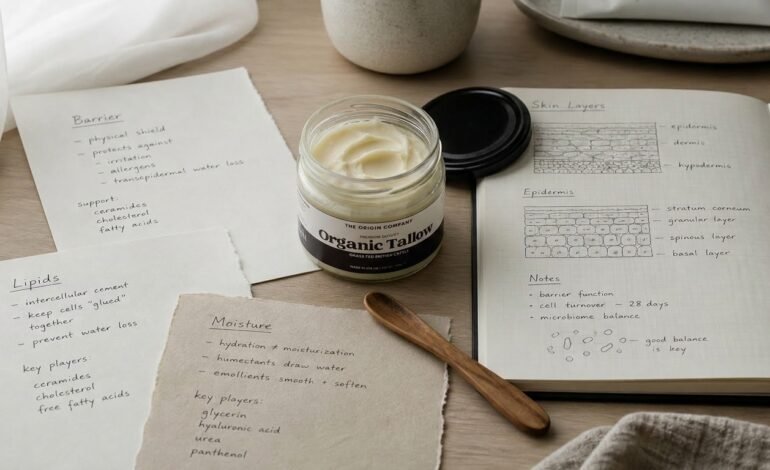 Barrier
- physical shield
- protects against
- irritation
- allergens
- transepidermal water loss
support:
ceramides
cholesterol
fatty acids
Lipids
- intercellular cement
- keep cells "glued"
together
- prevent water loss
key players:
ceramides
cholesterol
free fatty acids
Moisture
- hydration ≠ moisturization
- humectants draw water
- emollients smooth + soften
key players:
glycerin
hyaluronic acid
urea
panthenol
THE ORIGIN COMPANY
Organic Tallow
GRASS FED BRITISH CATTLE
Skin Layers
epidermis
dermis
hypodermis
Epidermis
stratum corneum
granular layer
spinous layer
basal layer
Notes
• barrier function
• cell turnover ~ 28 days
• microbiome balance
good balance
is key